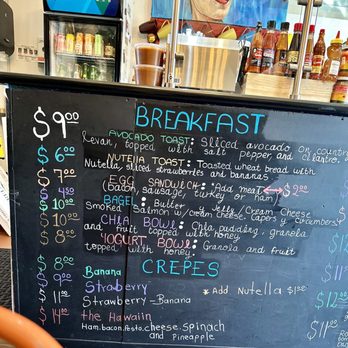 BREAKFAST
$9.00 AVOCADO TOAST: Sliced avocado on country
topped with salt pepper and cilantro,
$6.00 NUTELLA TOAST: Toasted wheat bread with
Nutella, sliced strawberries and bananas
$7.00 EGG SANDWICH: Add meat $2.00
(bacon, sausage, turkey or ham)
$4.50 BAGEL: Butter Jelly/Cream Cheese
$10.00 Smoked Salmon w/cream cheese, capers
$10.00 CHIA BOWL: Chia pudding, granola
and fruit topped with honey
$8.00 YOGURT BOWL: Granola and fruit
topped with honey.
CREPES
$8.00 Banana
$9.00 Straberry * Add Nutella $1.50
$11.00 Strawberry-Banana
$14.00 the Hawaiin
Ham.bacon.Pesto.cheese.spinach
and Pineapple
$11
$12
$11